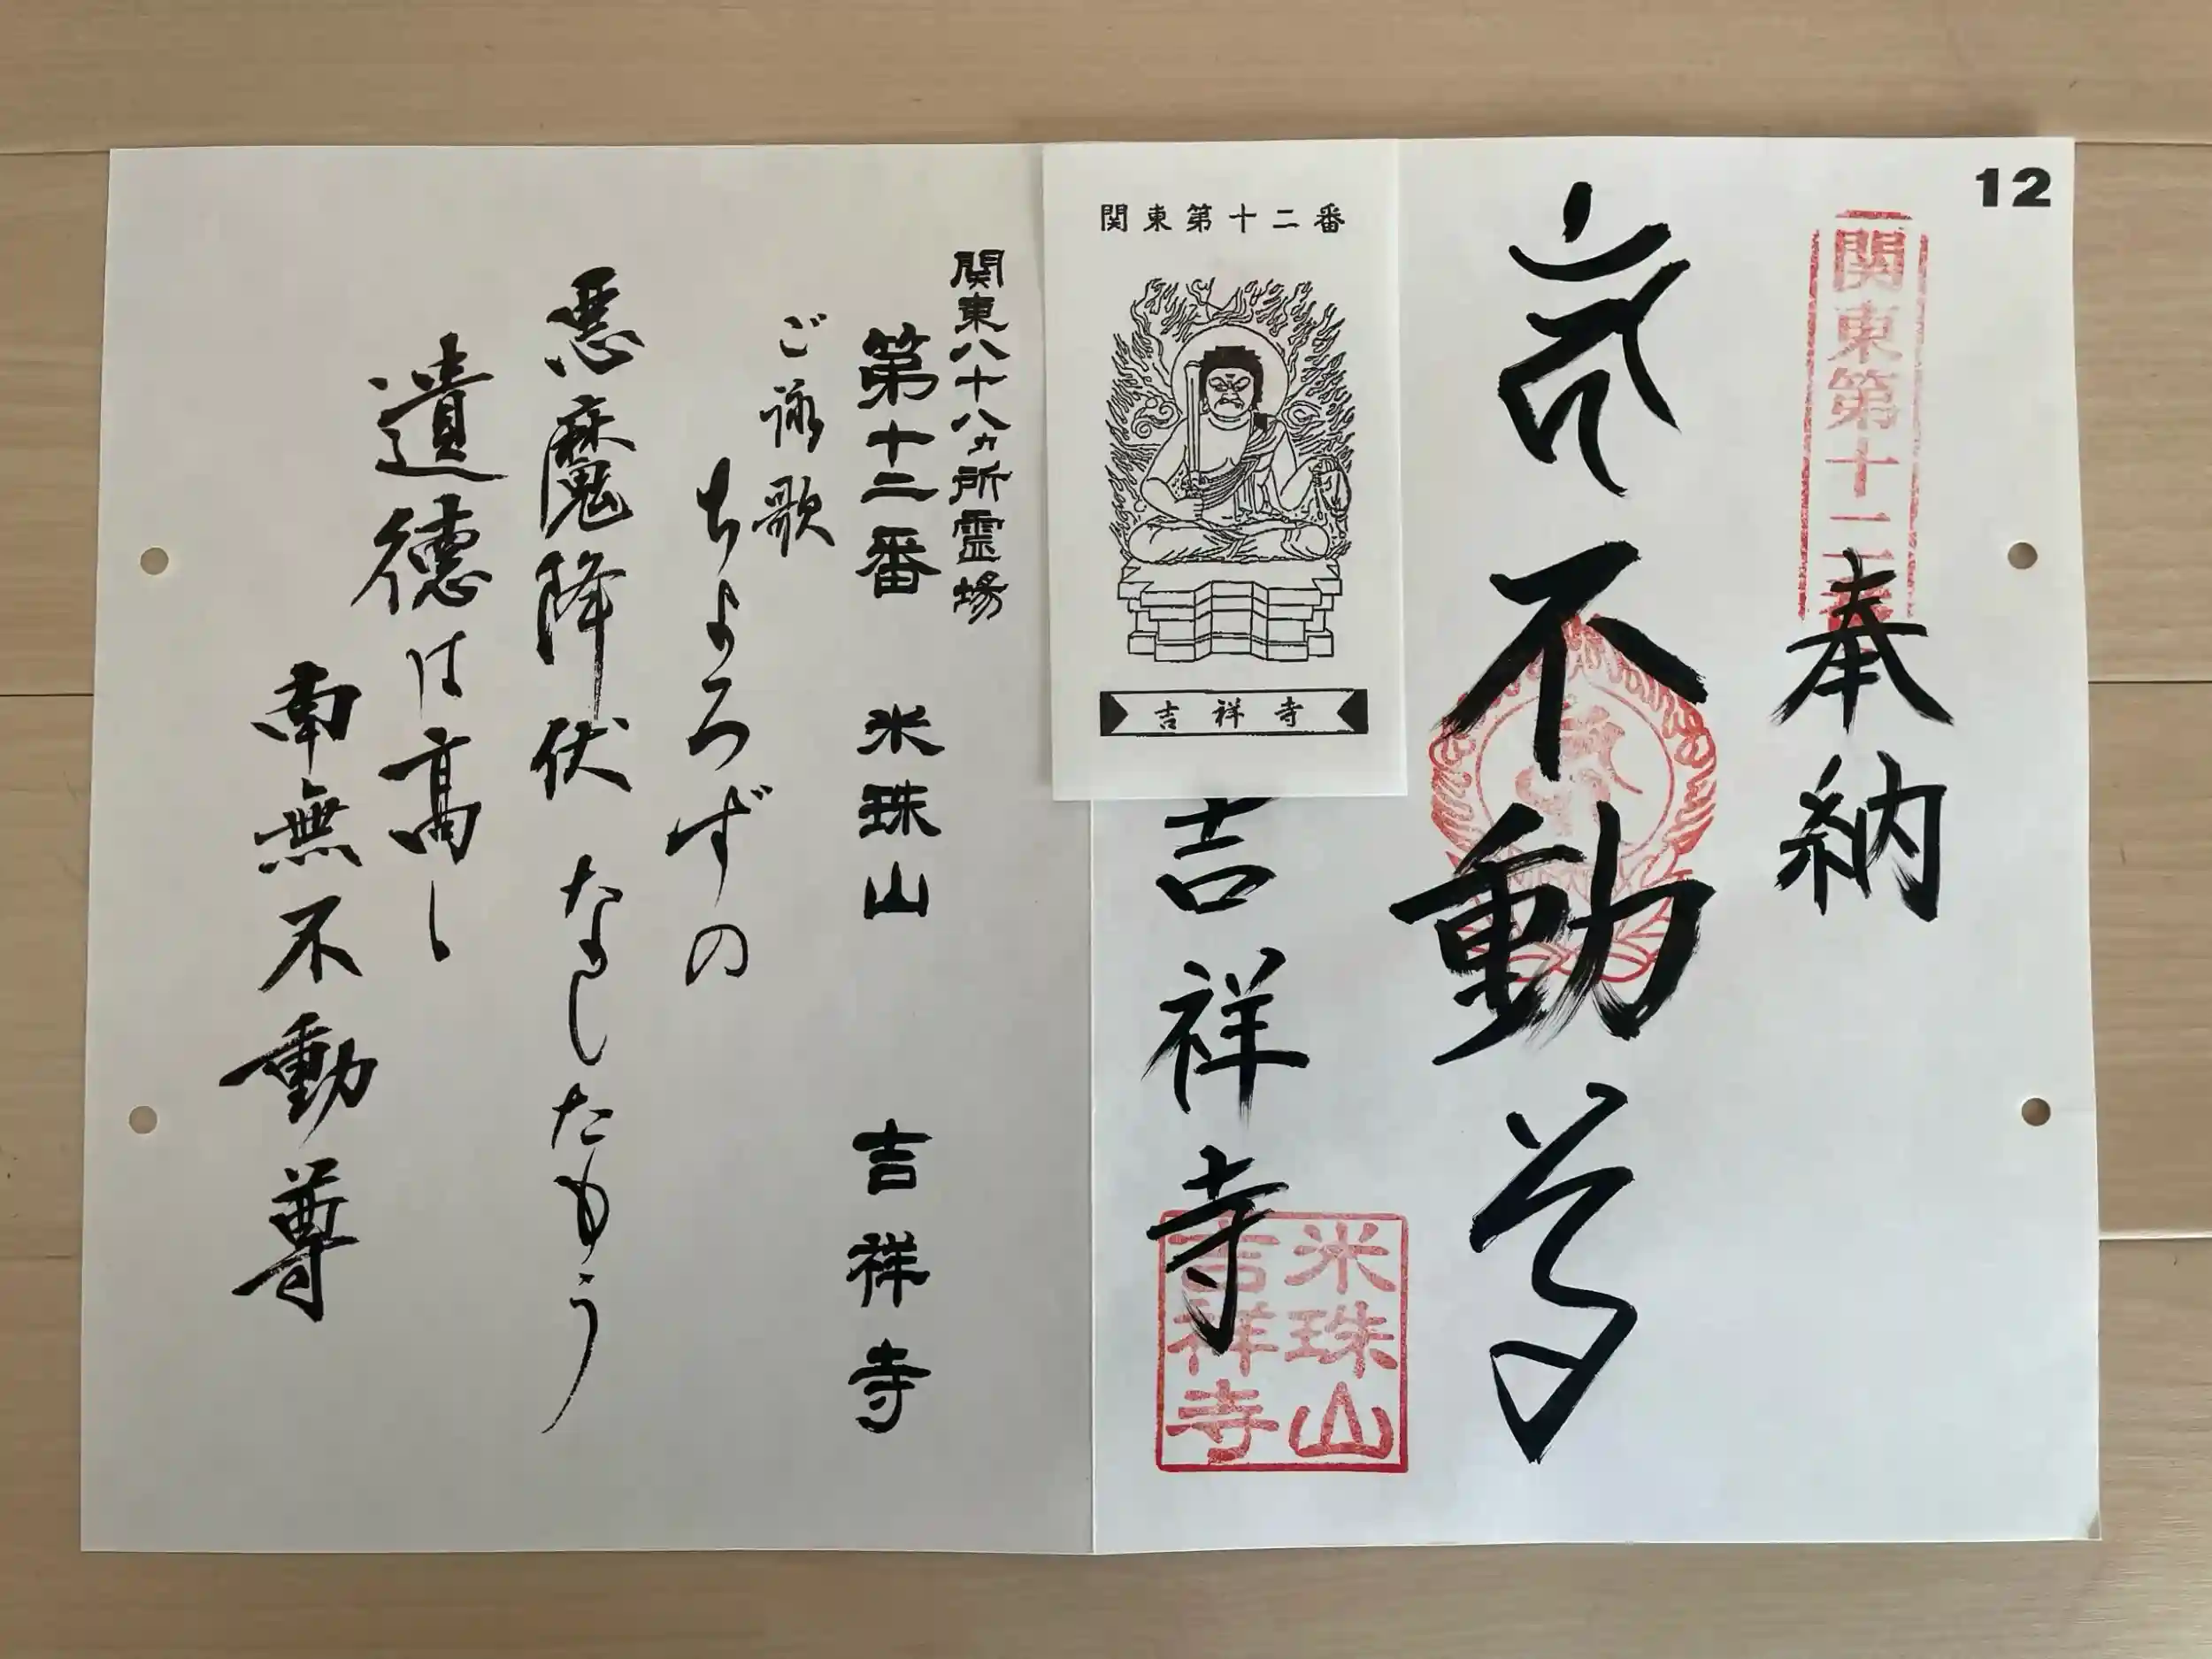 12
関東第十二番
奉納
不動尊
吉祥寺
米珠山
吉祥寺
関東第十二番
吉祥寺
関東八十八ヵ所霊場
第十二番 米珠山 吉祥寺
ご詠歌
ちよろずの
悪魔降伏なしたもう
遺徳は高し
南無不動尊